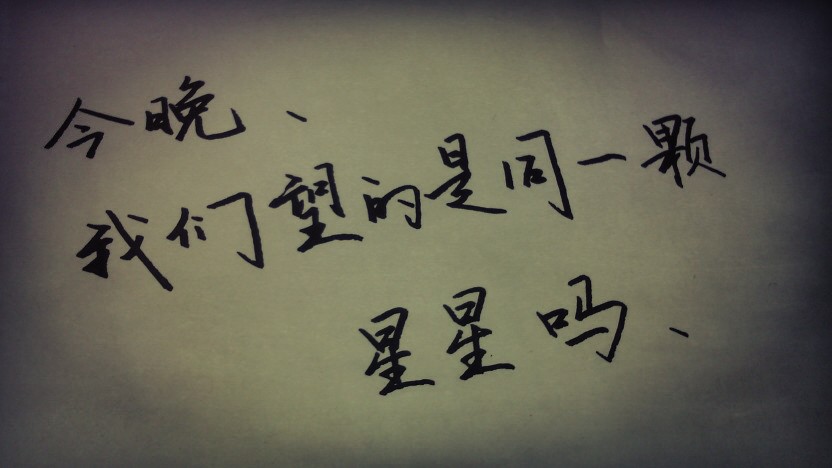 今晚、
我们望的是同一颗
星星吗、